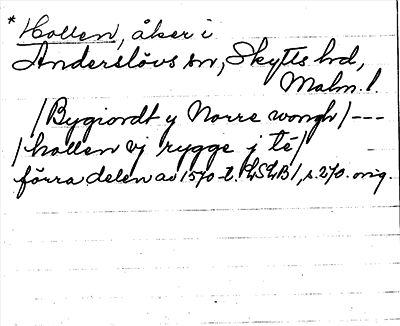 * Hollen, åker i
Anderslövs sn, Skytts hd,
Malm. l.
/Bygiordt y Norre wongh/---
/hollen vj rygge j te/
förra delen av 1570-t. , s. 270. orig.